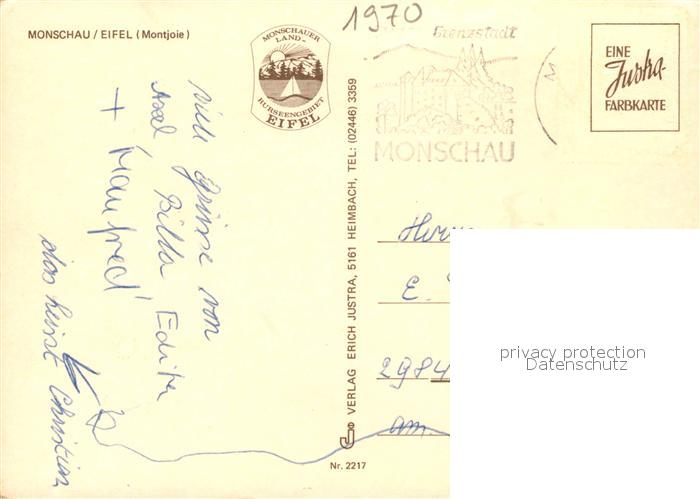 MONSCHAU / EIFEL (Montjoie)
MONSCHAUER
LAND-
RURSEENGEBIET
EIFEL
1970
Grenzstadt
MONSCHAU
EINE
Juska-
FARBKARTE
viele Grüsse von
Axel Billa Edith
+ Manfred
das heisst Christian
VERLAG ERICH JUSTRA, 5161 HEIMBACH, TEL: (02446) 3359
Nr. 2217
Herrn
E.
2984
am
privacy protection
Datenschutz